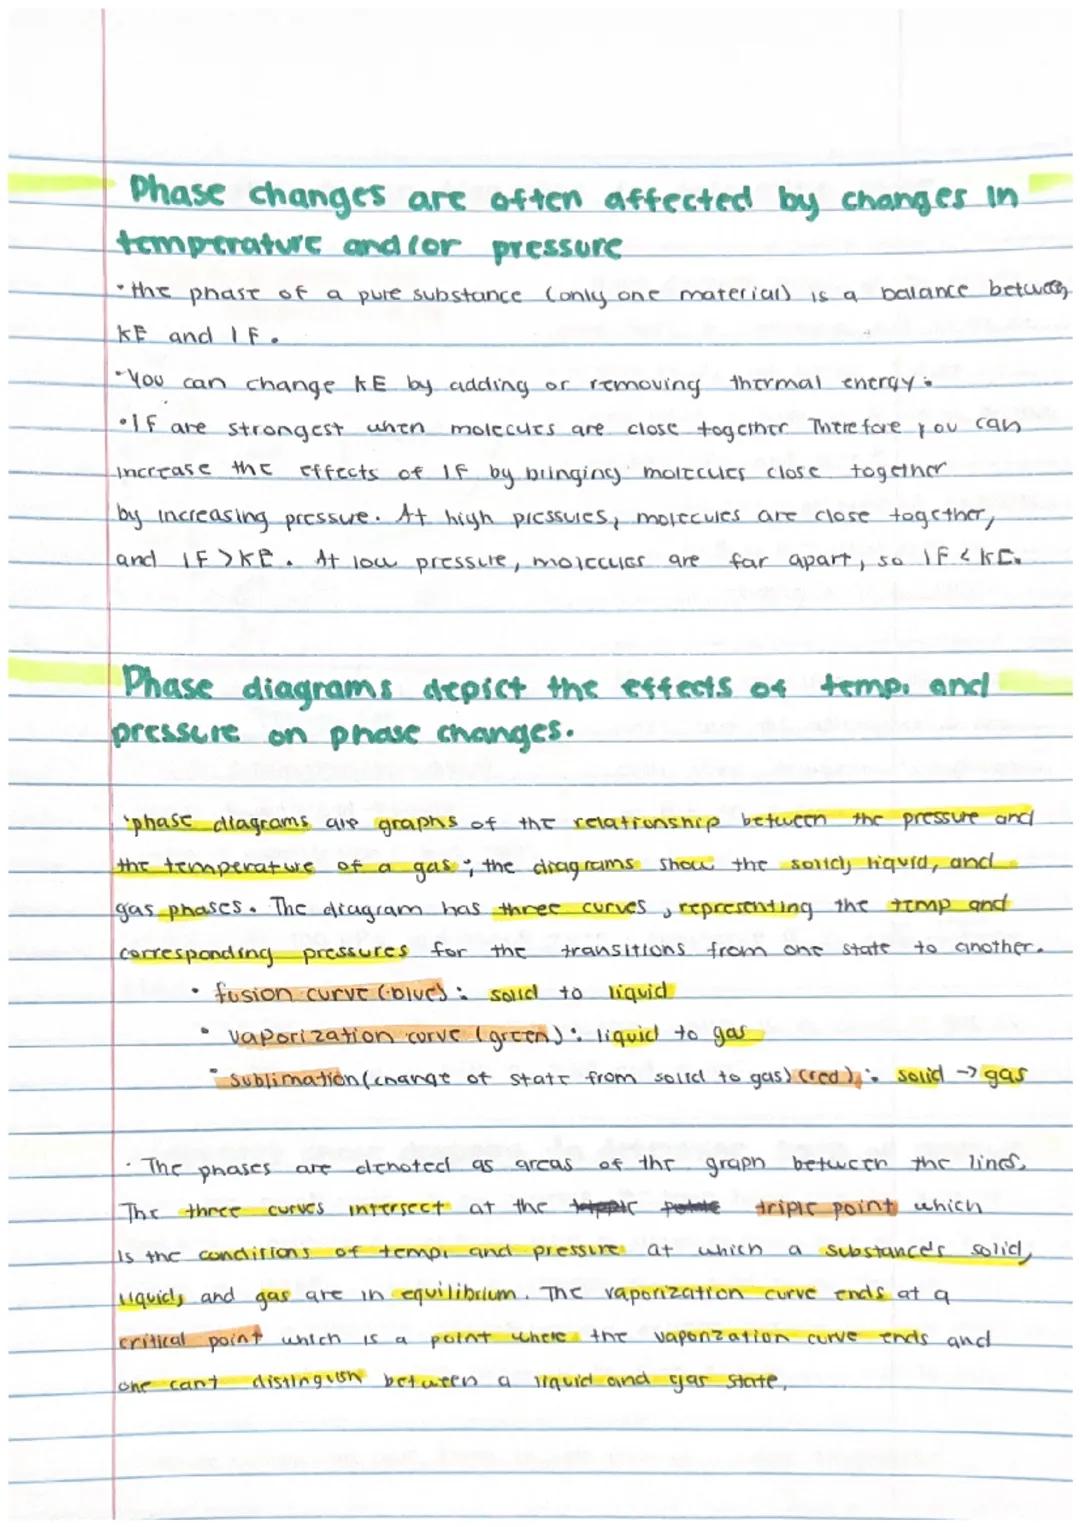 Phase changes are often affected by changes in
temperature and/or pressure
• the phase of a pure substance (only one material) is a balance between
KE and IF.
• You can change KE by adding or removing thermal energy.
• IF are strongest when molecules are close together Therefore you can
increase the effects of IF by bringing molecules close together
by increasing pressure. At high pressures, molecules are close together,
and IF > KE. At low pressure, molecules are far apart, so IF < KE.
Phase diagrams depict the effects of temp. and
pressure on phase changes.
• phase diagrams are graphs of the relationship between the pressure and
the temperature of a gas; the diagrams show the solid, liquid, and
gas phases. The diagram has three curves, representing the temp and
corresponding pressures for the transitions from one state to another.
• fusion curve (blue): solid to liquid
• vaporization curve (green): liquid to gas
• sublimation (change of state from solid to gas) (red): solid → gas
• The phases are denoted as areas of the graph between the lines.
The three curves intersect at the triple point which
is the conditions of temp. and pressure at which a substance's solid,
liquids and gas are in equilibrium. The vaporization curve ends at a
critical point which is a point where the vaporization curve ends and
one can't distinguish between a liquid and gas state.